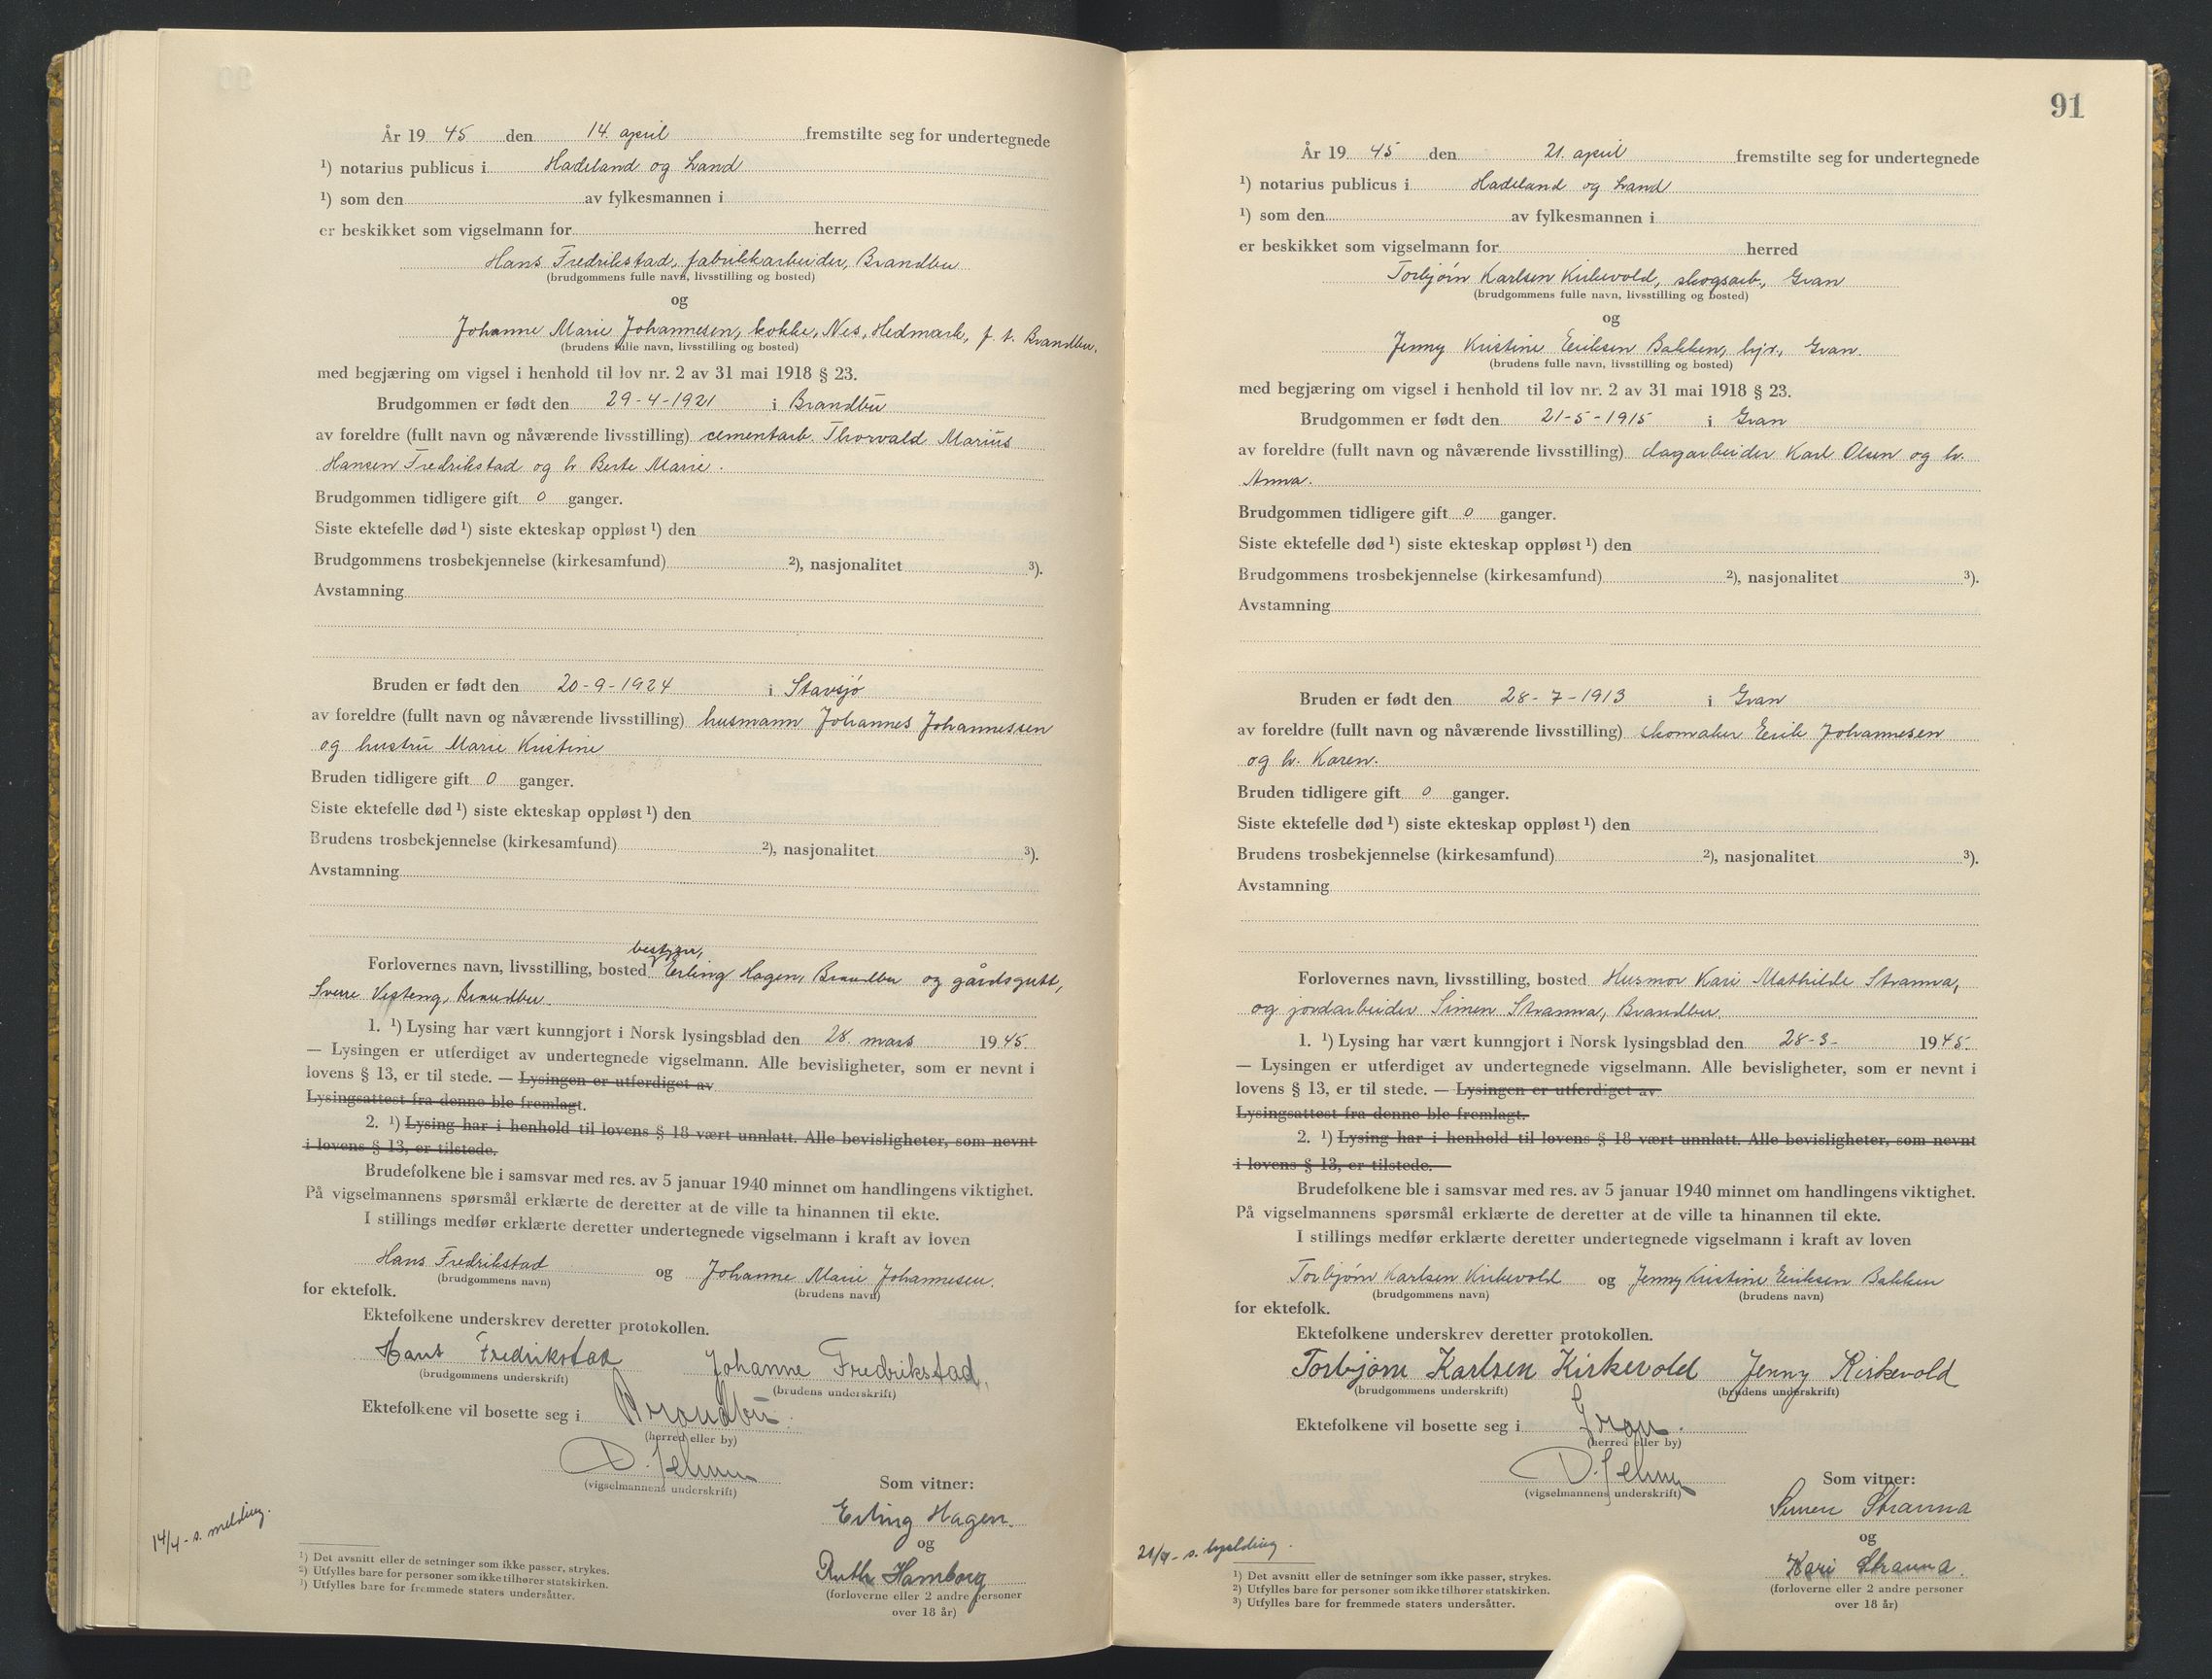 År 19 45 den 14. april fremstilte seg for undertegnede
¹) notarius publicus i Hadeland og Land
¹) som den av fylkesmannen i
er beskikket som vigselmann for herred
Hans Fredrikstad, fabrikkarbeider, Brandbu
(brudgommens fulle navn, livsstilling og bosted)
og
Johanne Marie Johannesen, kokke, Nes, Hedmark, f. t. Brandbu.
(brudens fulle navn, livsstilling og bosted)
med begjæring om vigsel i henhold til lov nr. 2 av 31 mai 1918 § 23.
Brudgommen er født den 29-4-1921 i Brandbu
av foreldre (fullt navn og nåværende livsstilling) cementarb. Thorvald Marius
Hansen Fredrikstad og h. Berte Marie.
Brudgommen tidligere gift 0 ganger.
Siste ektefelle død ¹) siste ekteskap oppløst ¹) den
Brudgommens trosbekjennelse (kirkesamfund) ²), nasjonalitet ³).
Avstamning
Bruden er født den 20-9-1924 i Stavsjø
av foreldre (fullt navn og nåværende livsstilling) husmann Johannes Johannessen
og hustru Marie Kristine
Bruden tidligere gift 0 ganger.
Siste ektefelle død ¹) siste ekteskap oppløst ¹) den
Brudens trosbekjennelse (kirkesamfund) ²), nasjonalitet ³).
Avstamning
bestyrer,
Forlovernes navn, livsstilling, bosted Erling Hagen, Brandbu og gårdsgutt,
Sverre Vesteng, Brandbu.
1. ¹) Lysing har vært kunngjort i Norsk lysingsblad den 28. mars 19 45.
— Lysingen er utferdiget av undertegnede vigselmann. Alle bevisligheter, som er nevnt i
lovens § 13, er til stede. — Lysingen er utferdiget av
Lysingsattest fra denne ble fremlagt.
2. ¹) Lysing har i henhold til lovens § 18 vært unnlatt. Alle bevisligheter, som nevnt
i lovens § 13, er tilstede.
Brudefolkene ble i samsvar med res. av 5 januar 1940 minnet om handlingens viktighet.
På vigselmannens spørsmål erklærte de deretter at de ville ta hinannen til ekte.
I stillings medfør erklærte deretter undertegnede vigselmann i kraft av loven
Hans Fredrikstad og Johanne Marie Johannesen.
(brudgommens navn) (brudens navn)
for ektefolk.
Ektefolkene underskrev deretter protokollen.
Hans Fredrikstad Johanne Fredrikstad.
(brudgommens underskrift) (brudens underskrift)
Ektefolkene vil bosette seg i Brandbu.
(herred eller by)
(vigselmannens underskrift)
Som vitner:
Erling Hagen.
og
Ruth Hamborg
(forloverne eller 2 andre personer
over 18 år)
14/4 - s. melding.
¹) Det avsnitt eller de setninger som ikke passer, strykes.
²) Utfylles bare for personer som ikke tilhører statskirken.
³) Utfylles bare for fremmede staters undersåtter.
91
År 19 45 den 21. april fremstilte seg for undertegnede
¹) notarius publicus i Hadeland og Land
¹) som den av fylkesmannen i
er beskikket som vigselmann for herred
Torbjørn Karlsen Kirkevold, skogsarb., Gran
(brudgommens fulle navn, livsstilling og bosted)
og
Jenny Kristine Eriksen Bakken, hjv., Gran.
(brudens fulle navn, livsstilling og bosted)
med begjæring om vigsel i henhold til lov nr. 2 av 31 mai 1918 § 23.
Brudgommen er født den 21-5-1915 i Gran
av foreldre (fullt navn og nåværende livsstilling) dagarbeider Karl Olsen og h.
Anna.
Brudgommen tidligere gift 0 ganger.
Siste ektefelle død ¹) siste ekteskap oppløst ¹) den
Brudgommens trosbekjennelse (kirkesamfund) ²), nasjonalitet ³).
Avstamning
Bruden er født den 28-7-1913 i Gran
av foreldre (fullt navn og nåværende livsstilling) skomaker Erik Johannesen
og h. Karen.
Bruden tidligere gift 0 ganger.
Siste ektefelle død ¹) siste ekteskap oppløst ¹) den
Brudens trosbekjennelse (kirkesamfund) ²), nasjonalitet ³).
Avstamning
Forlovernes navn, livsstilling, bosted Husmor Kari Mathilde Stranna,
og jordarbeider Simen Stranna, Brandbu.
1. ¹) Lysing har vært kunngjort i Norsk lysingsblad den 28-3- 19 45.
— Lysingen er utferdiget av undertegnede vigselmann. Alle bevisligheter, som er nevnt i
lovens § 13, er til stede. — Lysingen er utferdiget av
Lysingsattest fra denne ble fremlagt.
2. ¹) Lysing har i henhold til lovens § 18 vært unnlatt. Alle bevisligheter, som nevnt
i lovens § 13, er tilstede.
Brudefolkene ble i samsvar med res. av 5 januar 1940 minnet om handlingens viktighet.
På vigselmannens spørsmål erklærte de deretter at de ville ta hinannen til ekte.
I stillings medfør erklærte deretter undertegnede vigselmann i kraft av loven
Torbjørn Karlsen Kirkevold og Jenny Kristine Eriksen Bakken
(brudgommens navn) (brudens navn)
for ektefolk.
Ektefolkene underskrev deretter protokollen.
Torbjørn Karlsen Kirkevold Jenny Kirkevold
(brudgommens underskrift) (brudens underskrift)
Ektefolkene vil bosette seg i Gran.
(herred eller by)
(vigselmannens underskrift)
Som vitner:
Simen Stranna
og
Kari Stranna.
(forloverne eller 2 andre personer
over 18 år)
21/4 - s.
¹) Det avsnitt eller de setninger som ikke passer, strykes.
²) Utfylles bare for personer som ikke tilhører statskirken.
³) Utfylles bare for fremmede staters undersåtter.